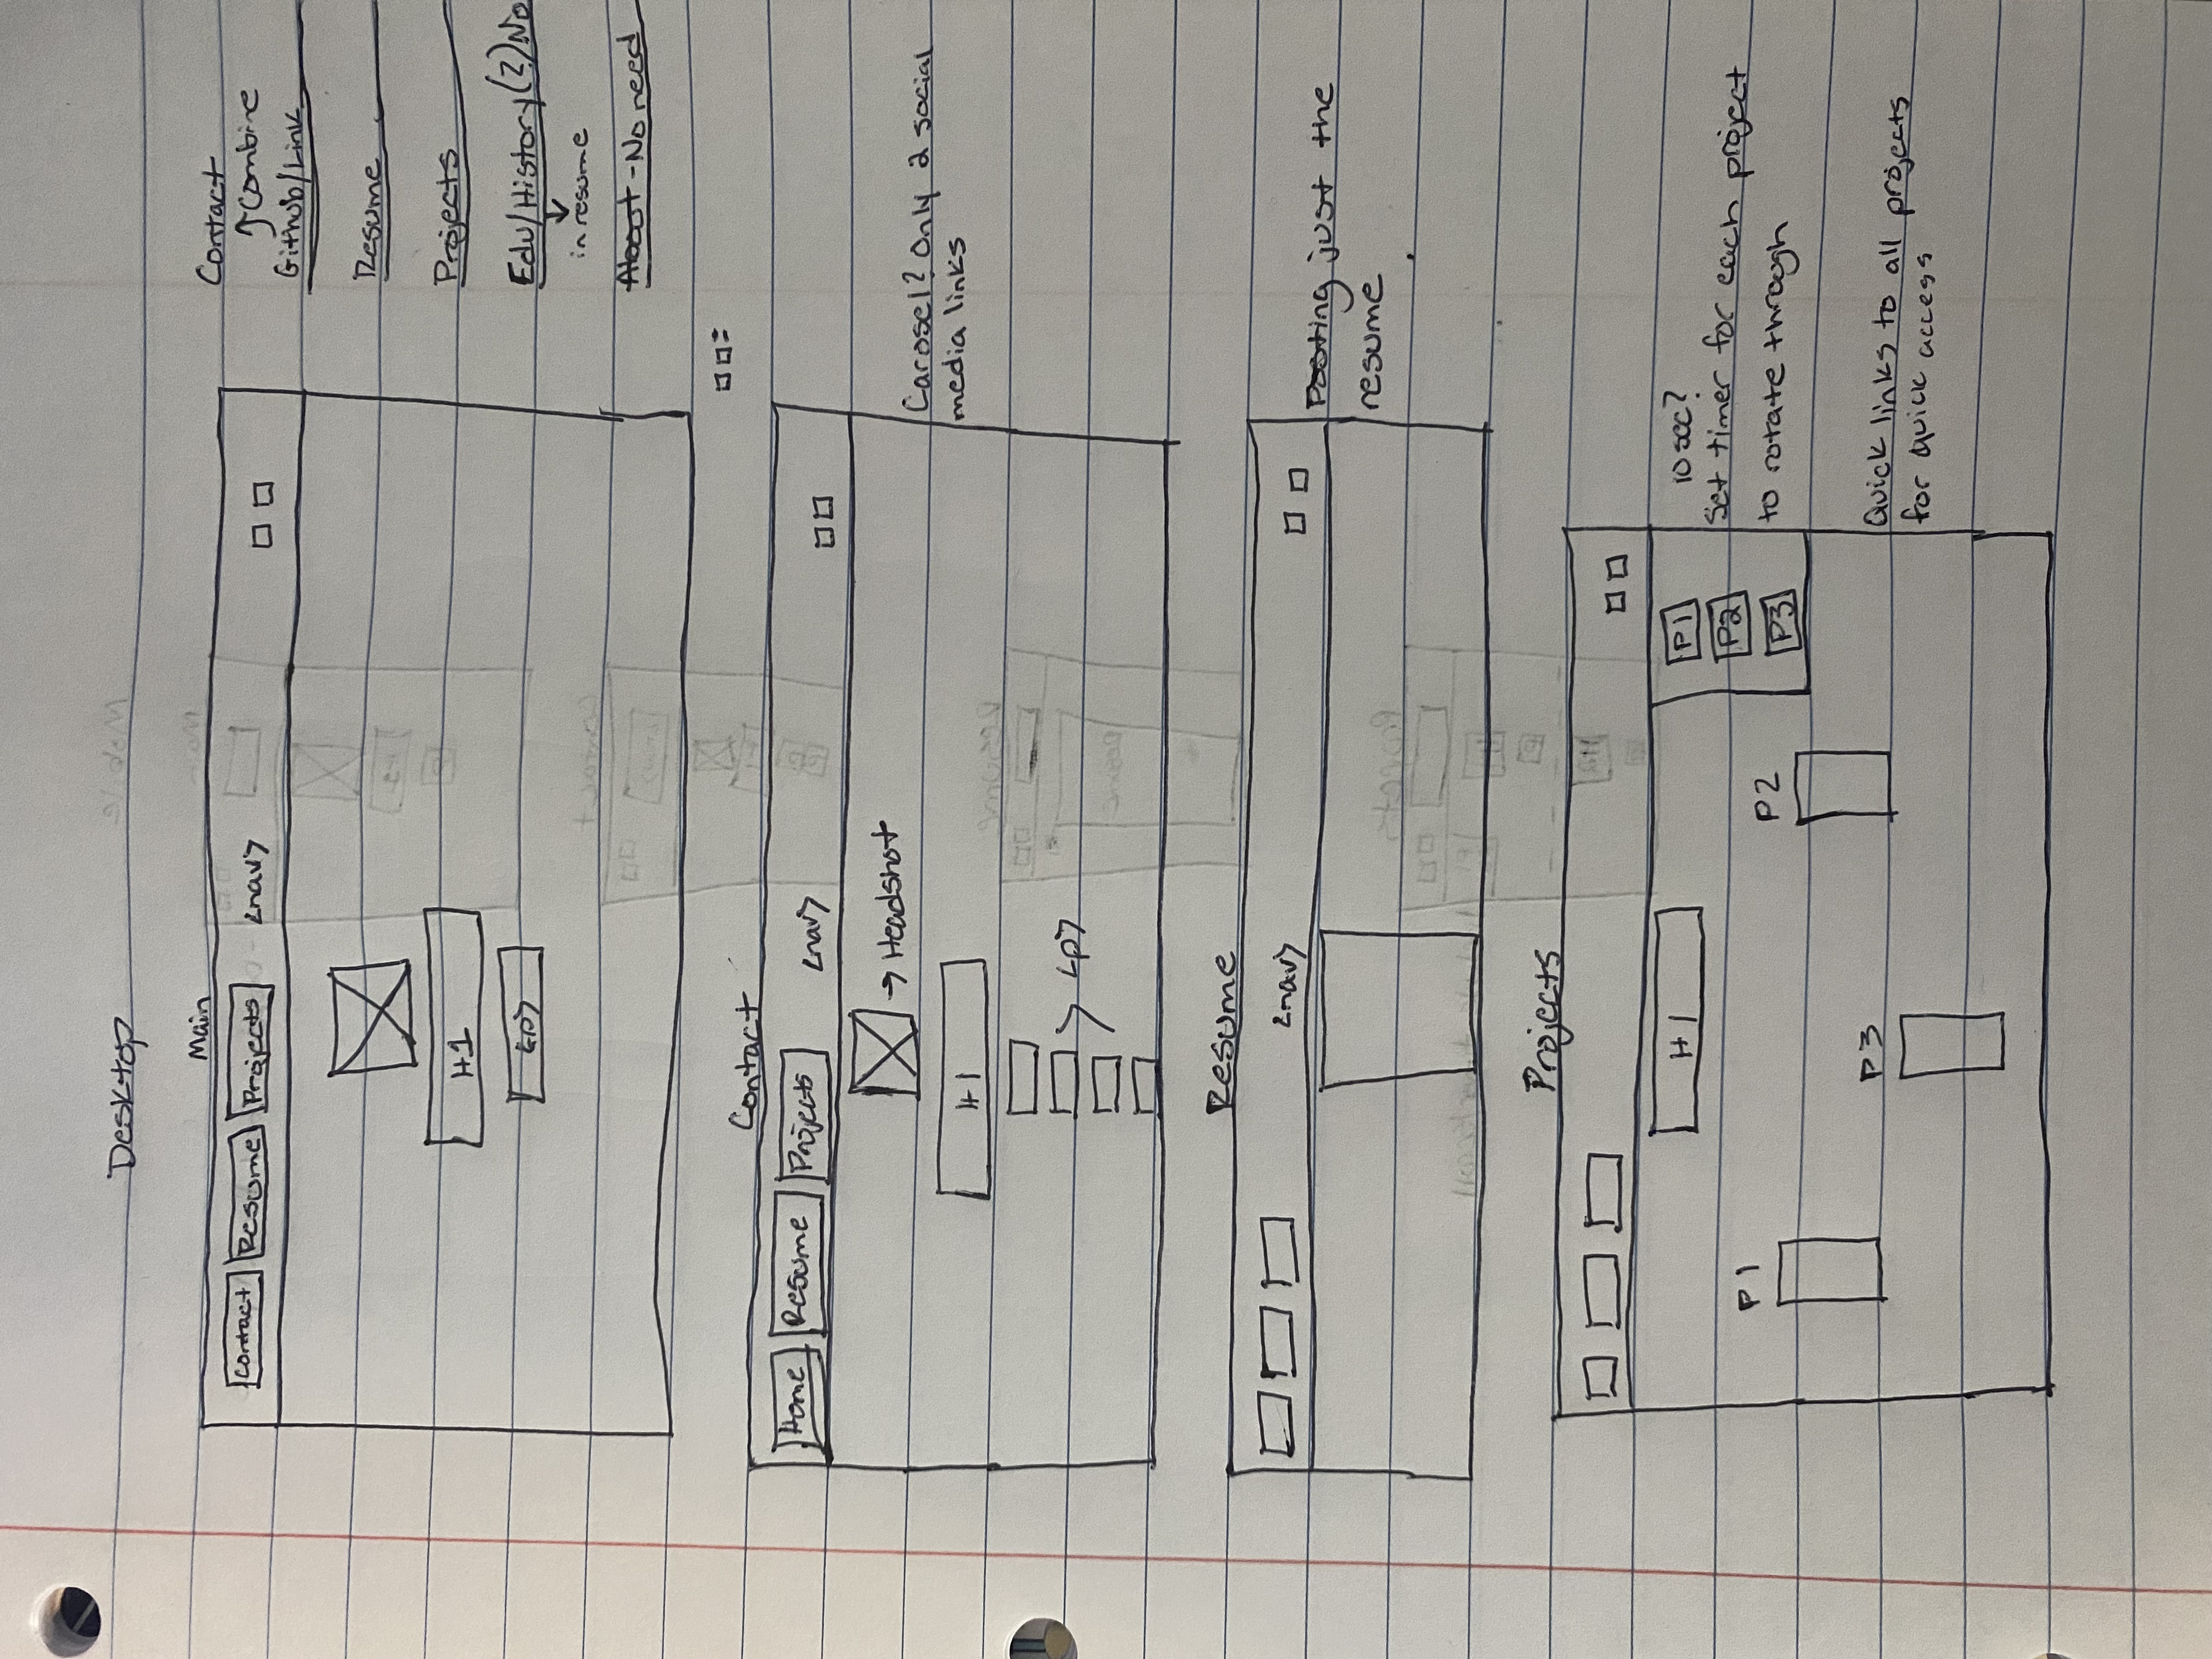 Desktop
Main
Contact Resume Projects <nav>
H1
<p>
Contact
↑ Combine
Github/Link
Resume
Projects
Edu/History (?) No
↓
in resume
About - No need
=
Contact
Home Resume Projects <nav>
→ Headshot
H1
> <p>
Carosel? Only 2 social
media links
Resume
<nav>
Posting just the
resume
Projects
H1
P1
P2
P3
10 sec?
Set timer for each project
to rotate through
P1
P2
P3
Quick links to all projects
for quick access